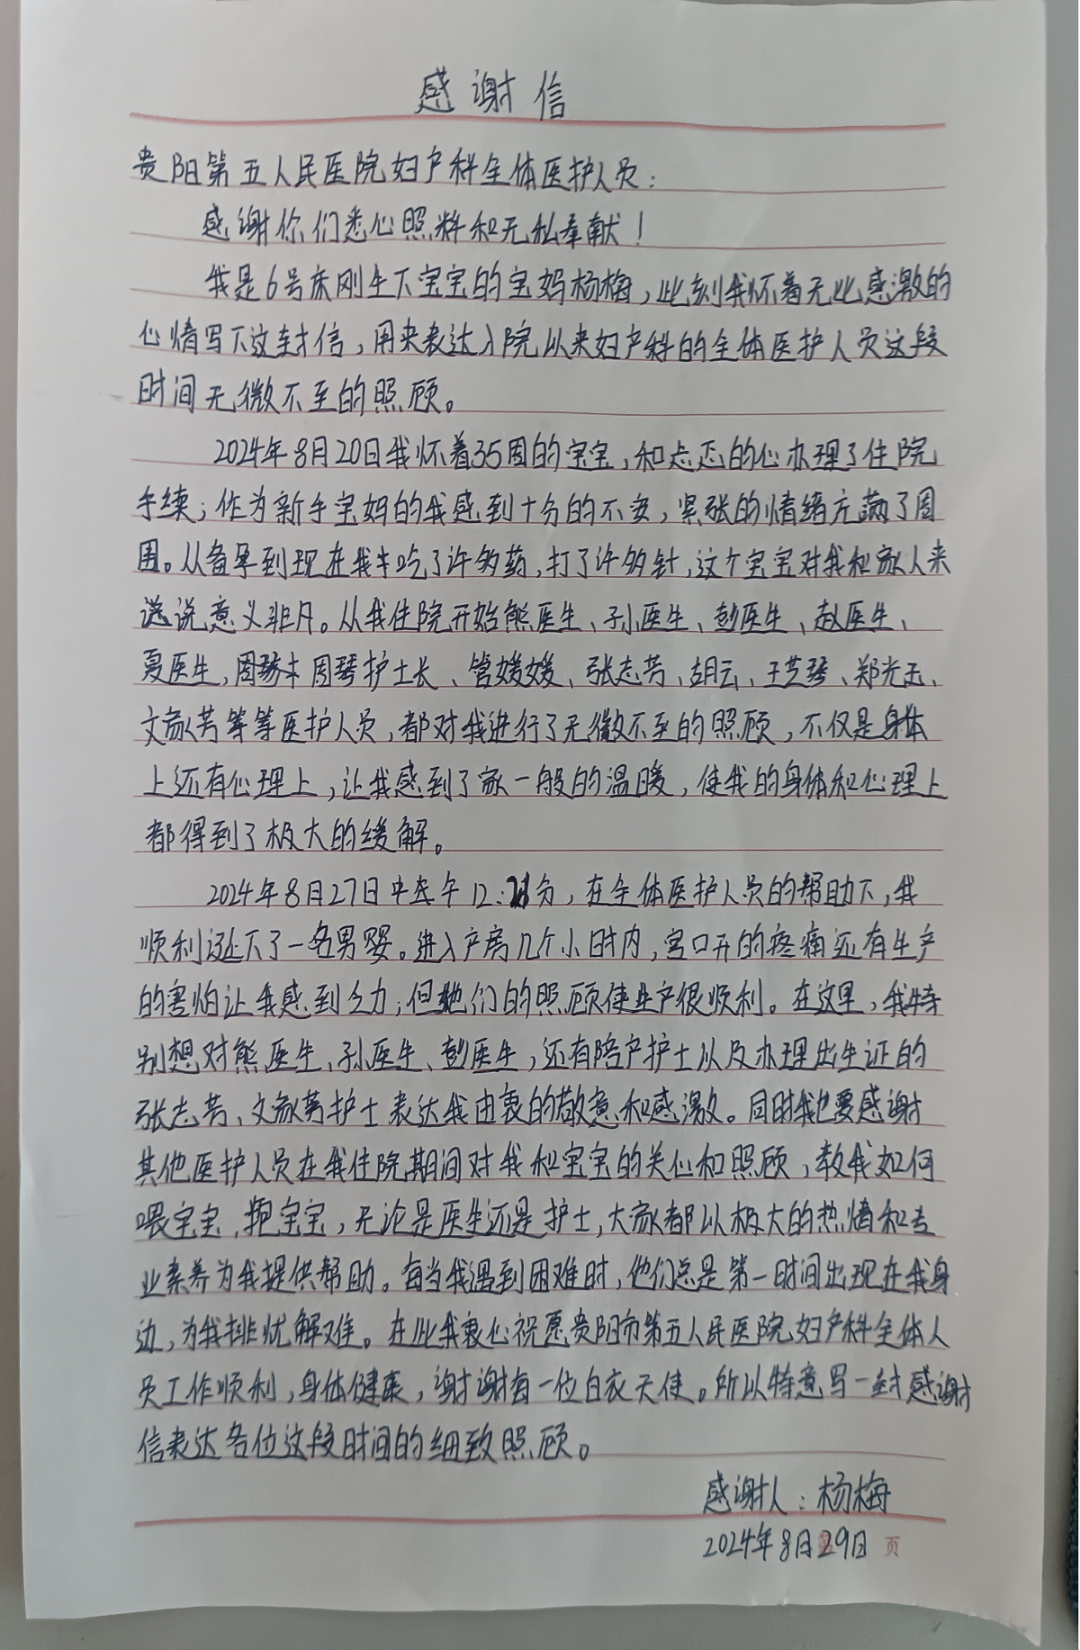 感谢信
贵阳第五人民医院妇产科全体医护人员：
感谢你们悉心照料和无私奉献！
我是6号床刚生下宝宝的宝妈杨梅，此刻我怀着无比感激的
心情写下这封信，用来表达入院以来妇产科的全体医护人员这段
时间无微不至的照顾。
2024年8月20日我怀着35周的宝宝，和忐忑的心办理了住院
手续；作为新手宝妈的我感到十分的不安，紧张的情绪充满了周
围。从备孕到现在我吃了许多药，打了许多针，这个宝宝对我和家人来
说意义非凡。从我住院开始熊医生、孙医生、彭医生、赵医生、
夏医生，周琴护士长、管媛媛、张志芳、胡云、王芝琴、郑光玉、
文家芳等等医护人员，都对我进行了无微不至的照顾，不仅是身体
上还有心理上，让我感到了家一般的温暖，使我的身体和心理上
都得到了极大的缓解。
2024年8月27日中午12：分，在全体医护人员的帮助下，我
顺利诞下了一名男婴。进入产房几个小时内，宫口开的疼痛还有生产
的害怕让我感到乏力；但她们的照顾使生产很顺利。在这里，我特
别想对熊医生、孙医生、彭医生，还有陪产护士以及办理出生证的
张志芳、文家芳护士表达我由衷的敬意和感激。同时我也要感谢
其他医护人员在我住院期间对我和宝宝的关心和照顾，教我如何
喂宝宝，抱宝宝，无论是医生还是护士，大家都以极大的热情和专
业素养为我提供帮助。每当我遇到困难时，他们总是第一时间出现在我身
边，为我排忧解难。在此我衷心祝愿贵阳市第五人民医院妇产科全体人
员工作顺利，身体健康，谢谢每一位白衣天使。所以特意写一封感谢
信表达各位这段时间的细致照顾。
感谢人：杨梅
2024年8月29日 页